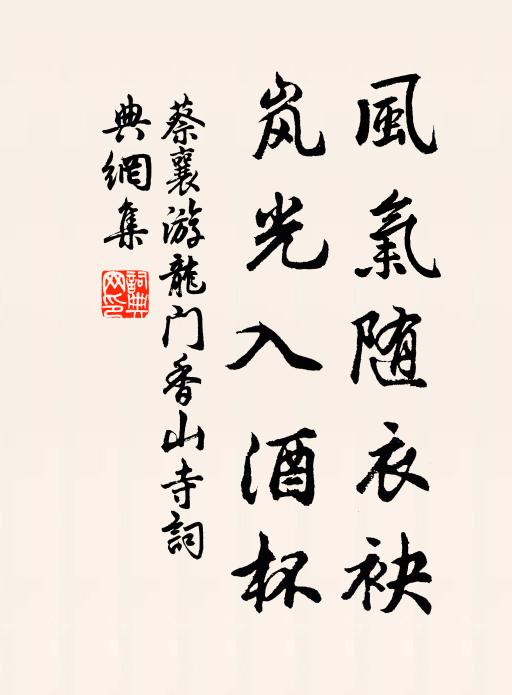 風氣随衣袂
岚光入酒杯
蔡襄游龍门香山寺詞
典網集
詞典网印